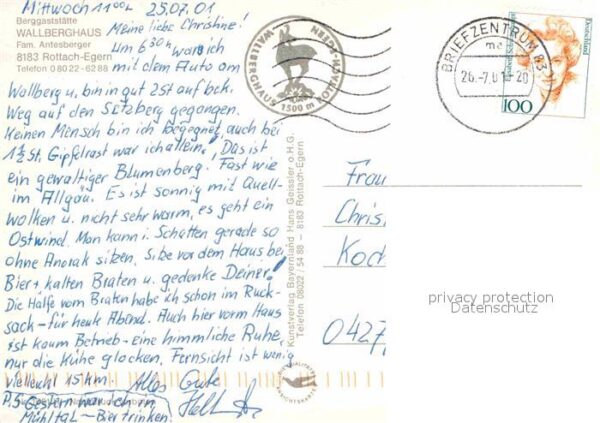 Mittwoch 11ooh 25.07.01
Berggaststätte
WALLBERGHAUS
Fam. Antesberger
8183 Rottach-Egern
Telefon 0 80 22 - 62 88
Meine liebe Christine!
um 630h war ich
mit dem Auto am
Wallberg u. bin in gut 2St auf bek.
Weg auf den Setzberg gegangen.
Keinen Mensch bin ich begegnet, auch bei
1½ St. Gipfelrast war ich allein! Das ist
ein gewaltiger Blumenberg. Fast wie
im Allgäu. Es ist sonnig mit Quell-
wolken u. nicht sehr warm, es geht ein
Ostwind. Man kann i. Schatten gerade so
ohne Anorak sitzen. Sitze vor dem Haus bei
Bier + kalten Braten u. gedenke Deiner!
Die Hälfe vom Braten habe ich schon im Ruck-
sack - für heute Abend. Auch hier vorm Haus
ist kaum Betrieb - eine himmliche Ruhe,
nur die Kühe glocken. Fernsicht ist wenig
vielleicht 15 km. Alles Gute
P.S. Gestern war ich in
Mühltal - Bier trinken!
WALLBERGHAUS 1500 m ROTTACH-EGERN
Kunstverlag Bayernland Hans Geissler o.H.G.
Telefon 08022 / 54 88 - 8183 Rottach-Egern
BRIEFZENTRUM 83
26.-7.01-20
100
Deutschland
Frau
Chris
Kod
0427
privacy protection
Datenschutz